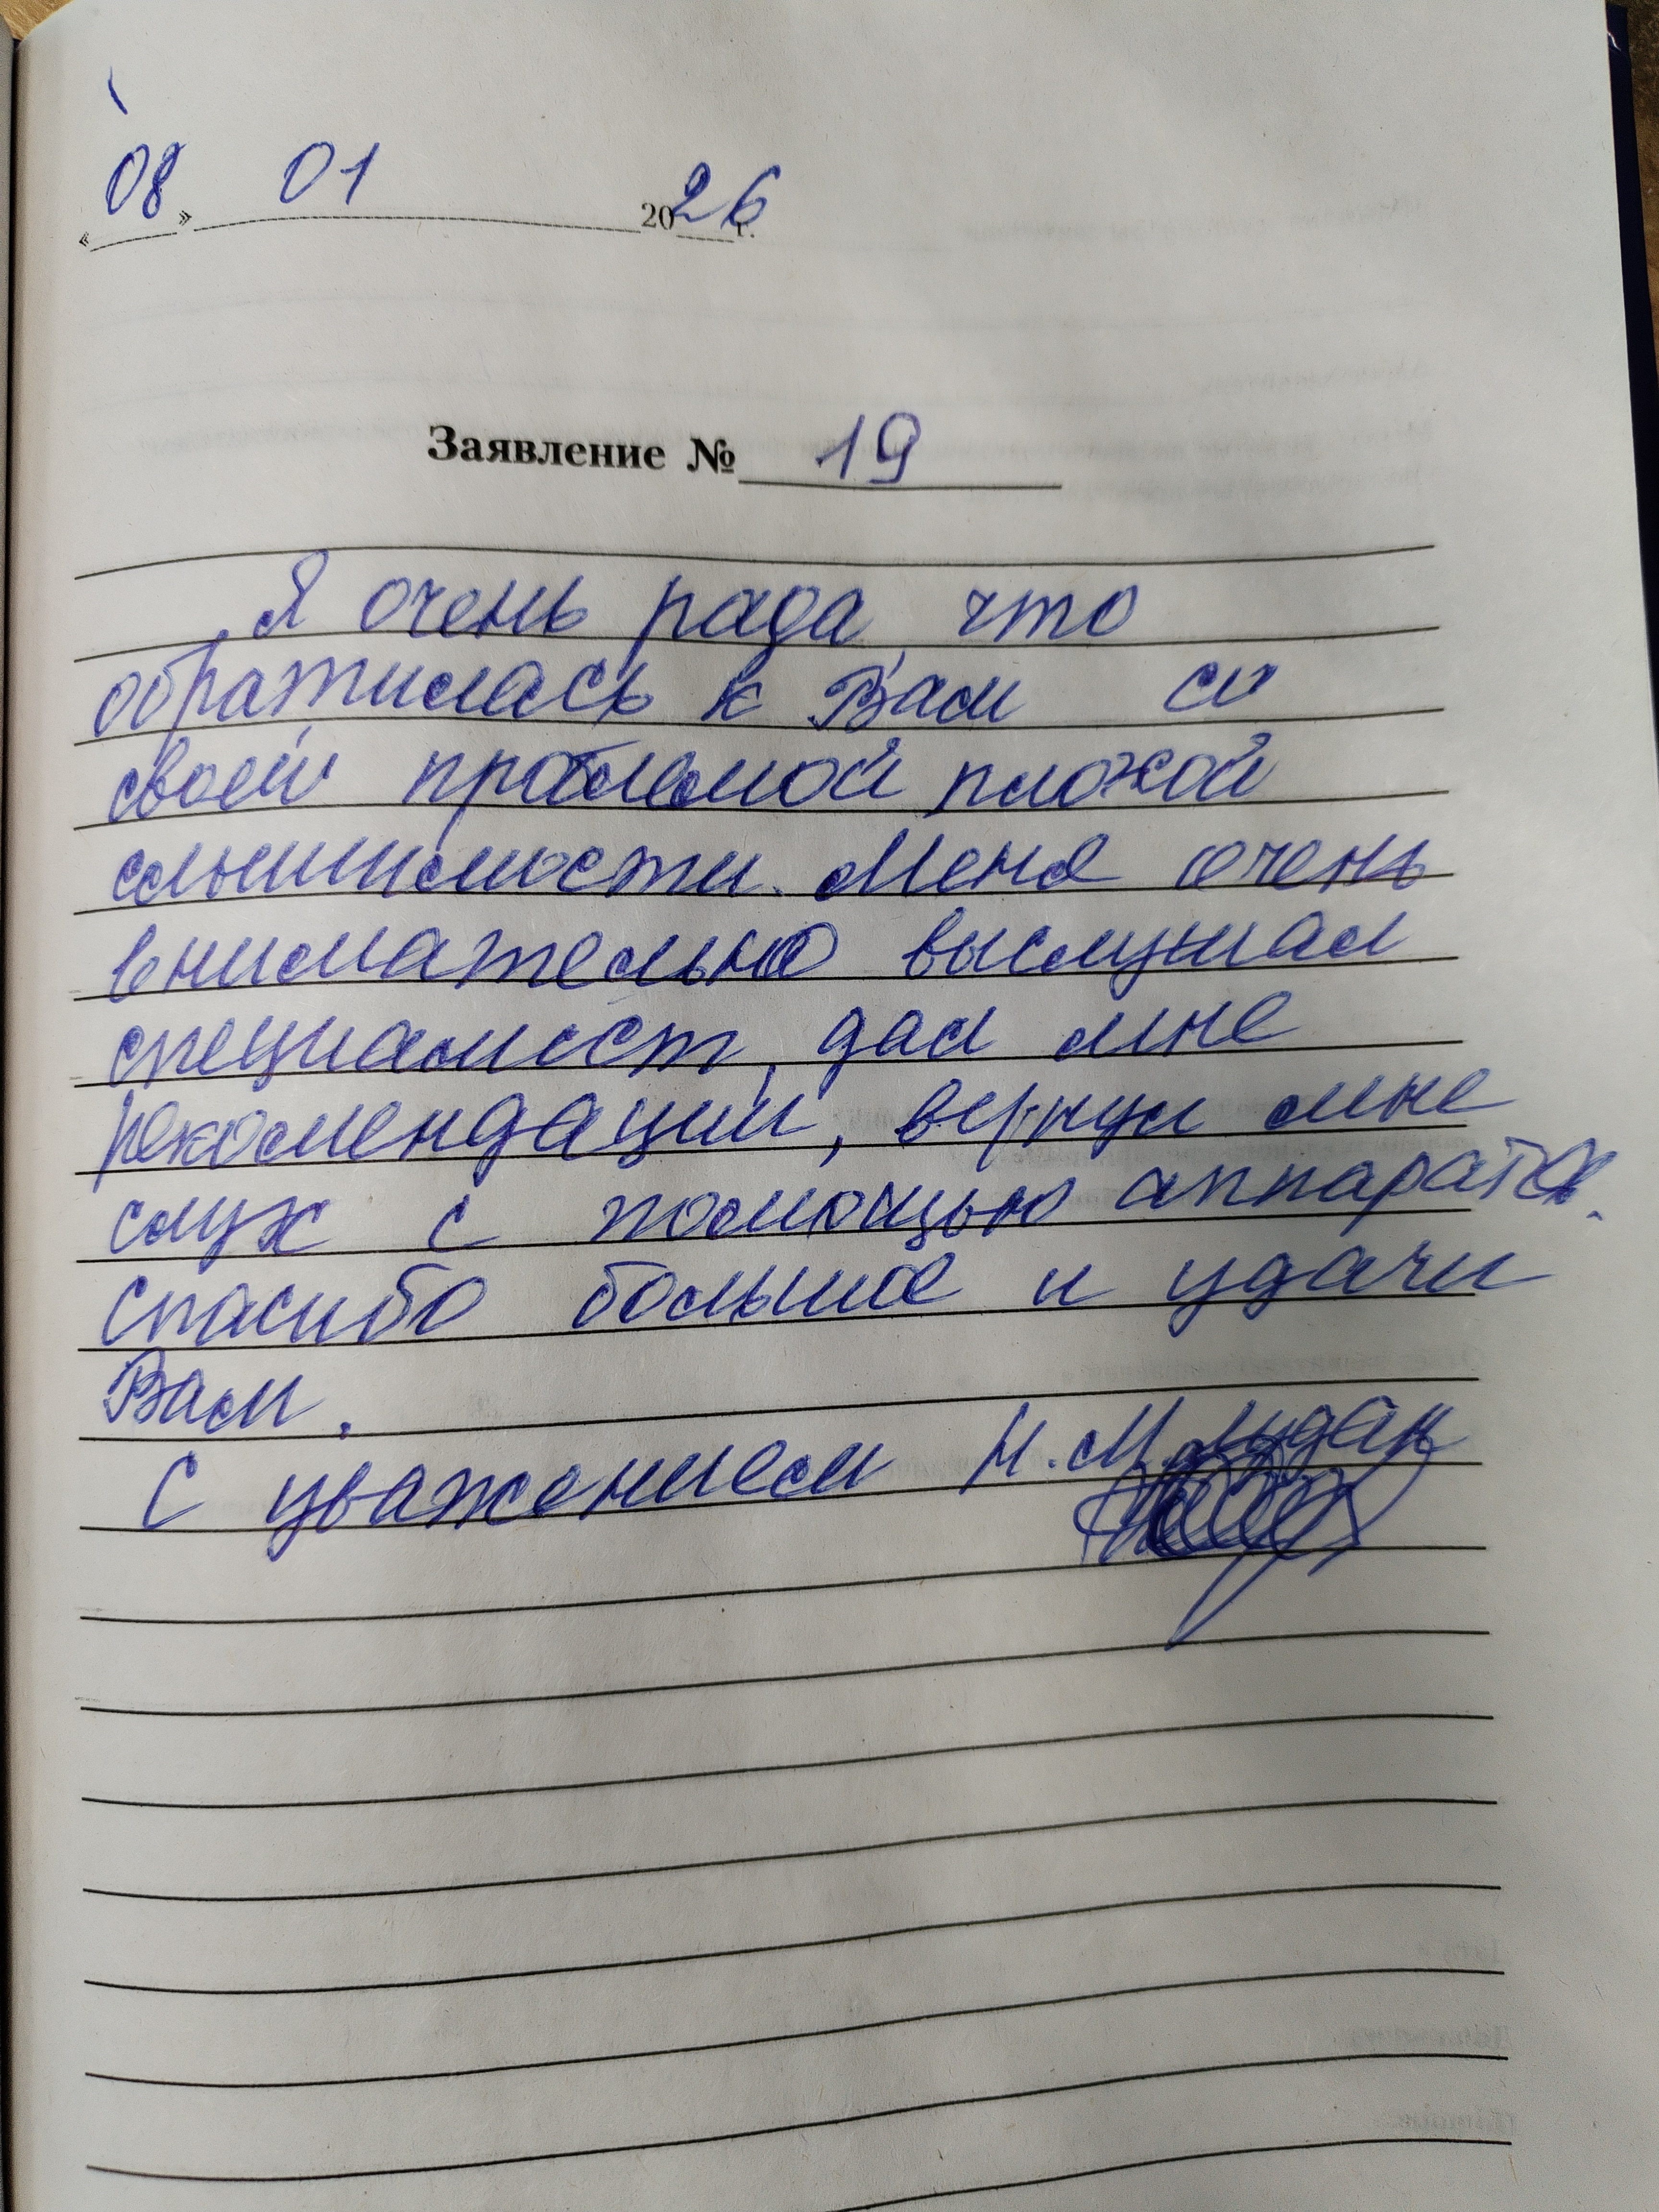 «08» 01 2026 г.
Заявление № 19
Я очень рада, что
обратилась к Вам со
своей проблемой плохой
слышимости. Меня очень
внимательно выслушал
специалист, дал мне
рекомендации, вернул мне
слух с помощью аппарата.
спасибо большое и удачи
Вам.
С уважением Н.М.